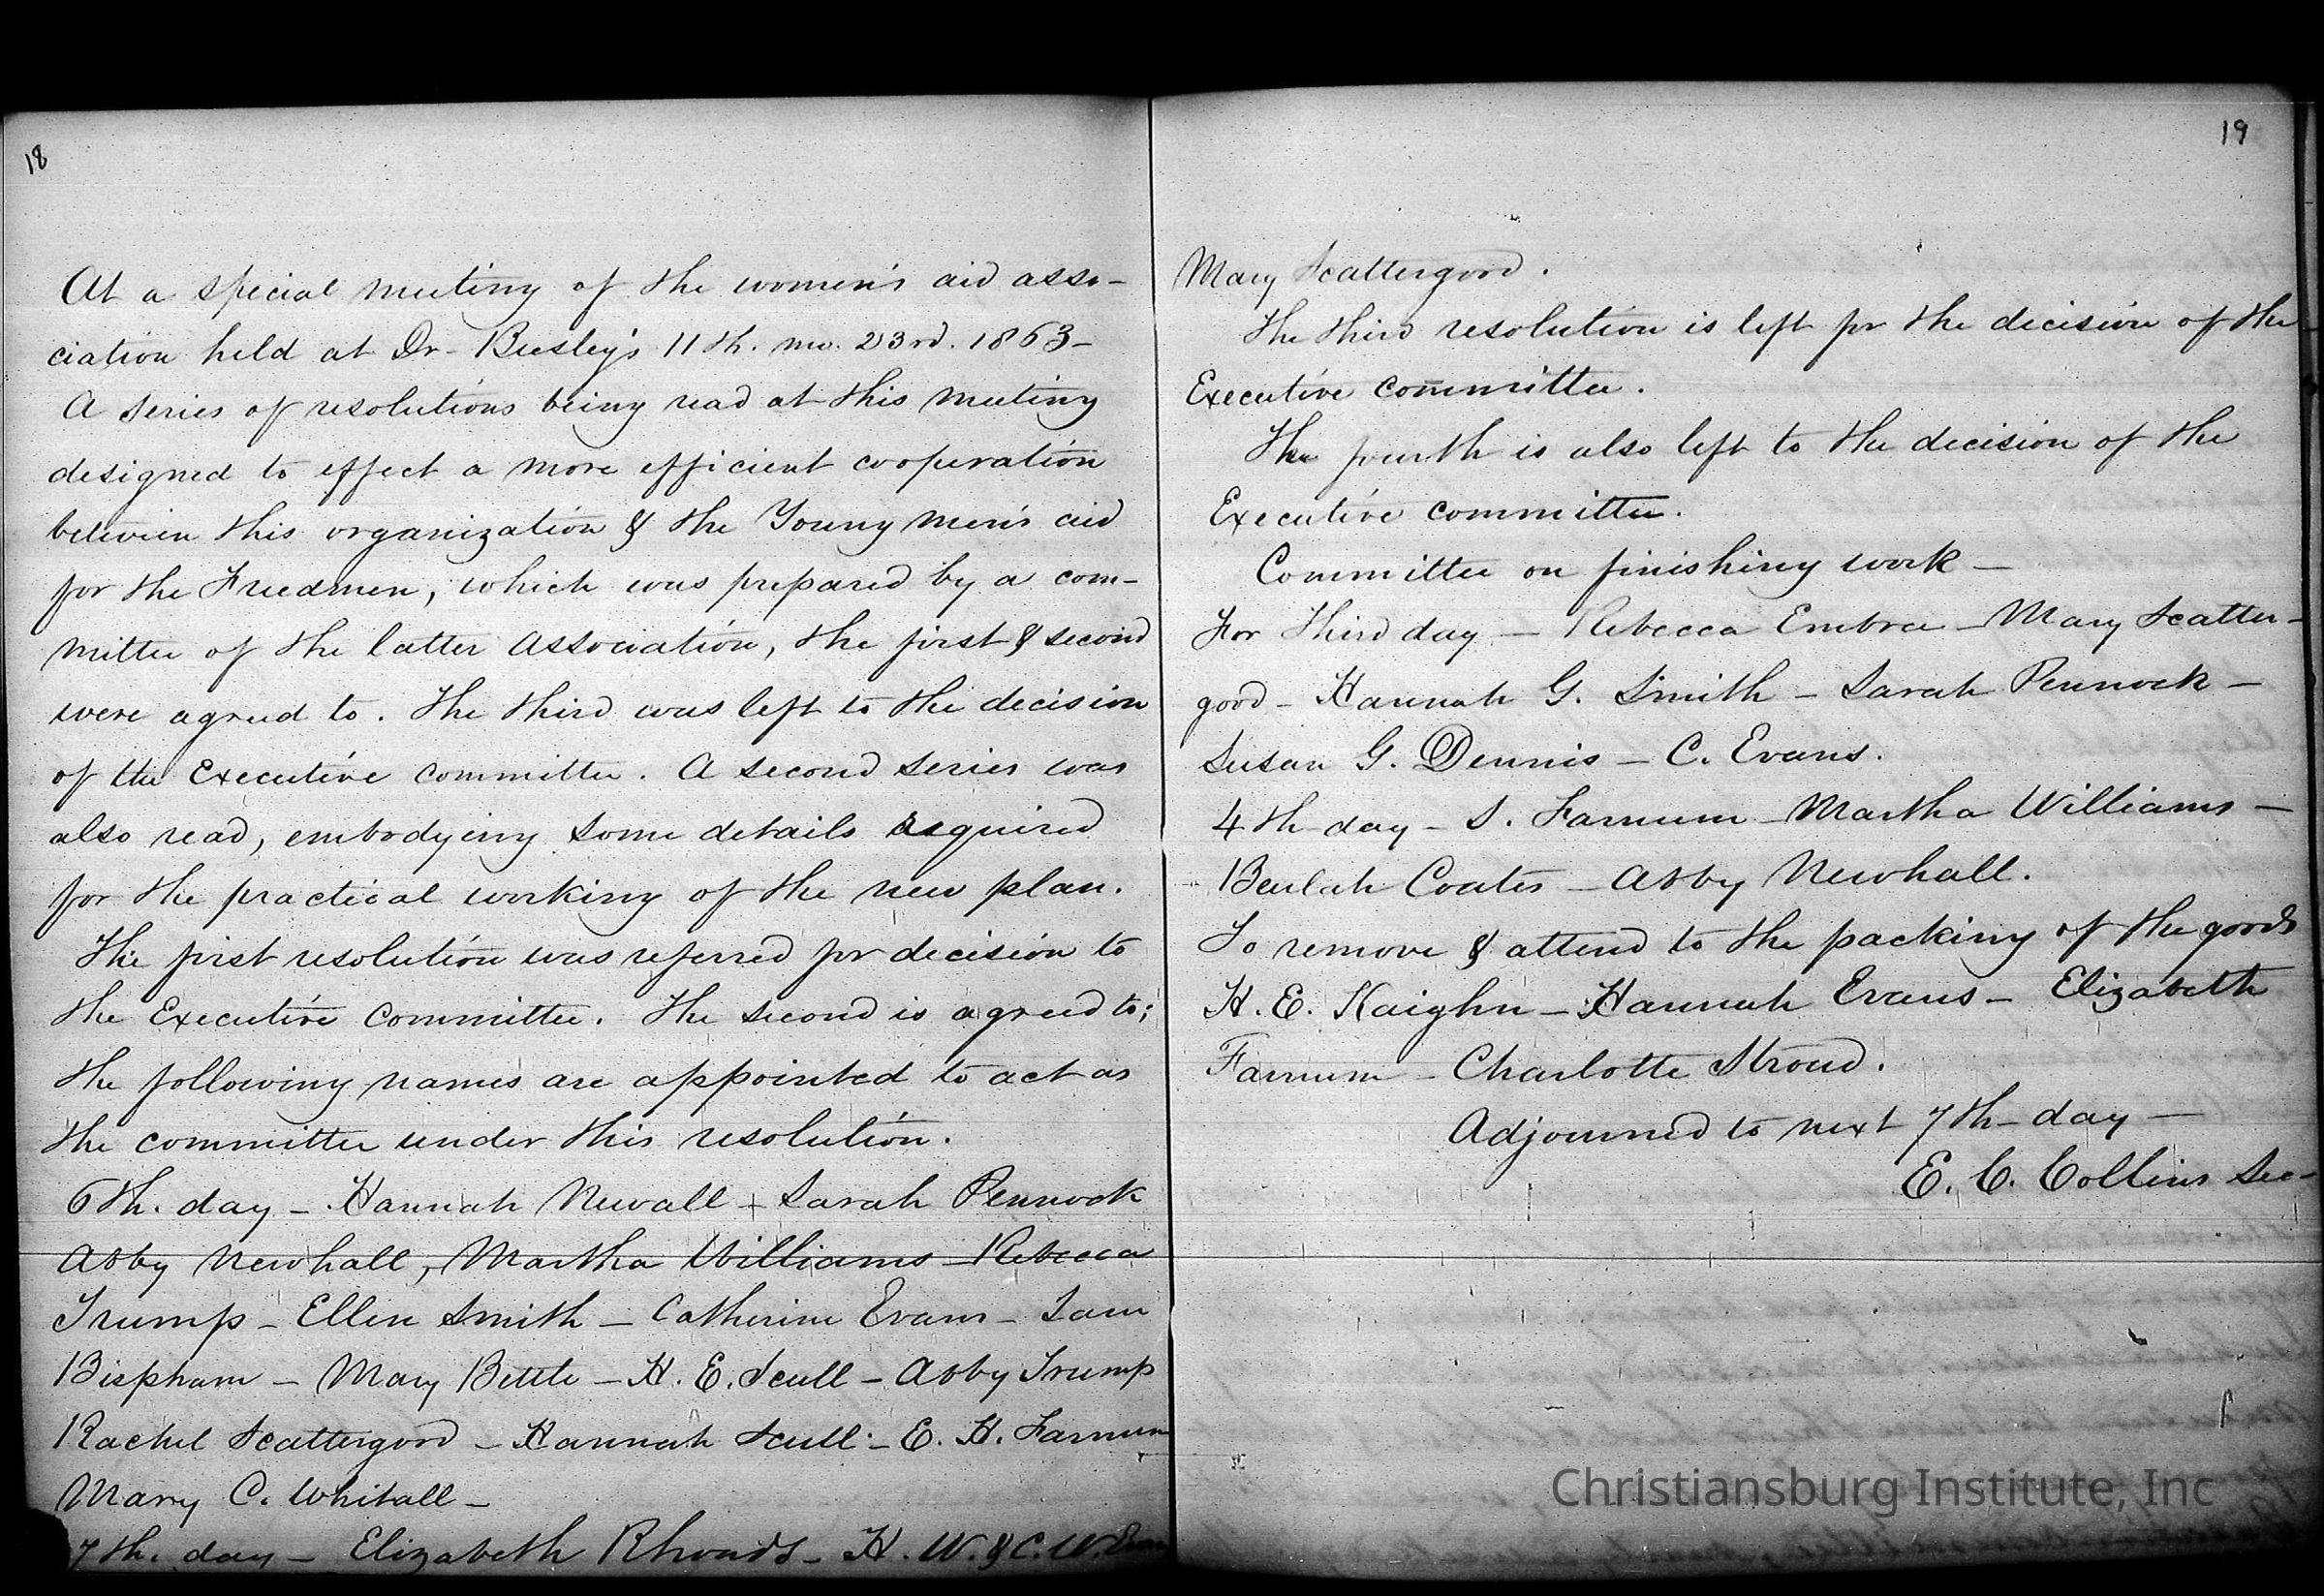 18
At a special meeting of the women's aid asso-
ciation held at Dr- Beesley's 11th. mo. 23rd. 1863-
A series of resolutions being read at this meeting
designed to effect a more efficient cooperation
between this organization & the Young men's aid
for the Freedmen, which was prepared by a com-
mittee of the latter association, the first & second
were agreed to. The third was left to the decision
of the Executive committee. A second series was
also read, embodying some details required
for the practical working of the new plan.
The first resolution was referred for decision to
the Executive Committee. The second is agreed to;
the following names are appointed to act as
the committee under this resolution.
6th. day - Hannah Newall - Sarah Pennock
Abby Newhall, Martha Williams - Rebecca
Trump - Ellen Smith - Catherine Evans - Sam
Bispham - Mary Bettle - H. E. Scull - Abby Trump
Rachel Scattergood - Hannah Scull - E. H. Farnum
Mary C. Whitall -
7th. day - Elizabeth Rhoads - H. W. & C. W.
19
Mary Scattergood.
The third resolution is left for the decision of the
Executive committee.
The fourth is also left to the decision of the
Executive committee.
Committee on finishing work -
For Third day - Rebecca Embree - Mary Scatter-
good - Hannah G. Smith - Sarah Pennock -
Susan G. Dennis - C. Evans.
4th day - S. Farnum - Martha Williams -
Beulah Coates - Abby Newhall.
To remove & attend to the packing of the goods
H. E. Kaighn - Hannah Evans - Elizabeth
Farnum - Charlotte Stroud.
Adjourned to next 7th- day -
E. C. Collins Sec-
Christiansburg Institute, Inc